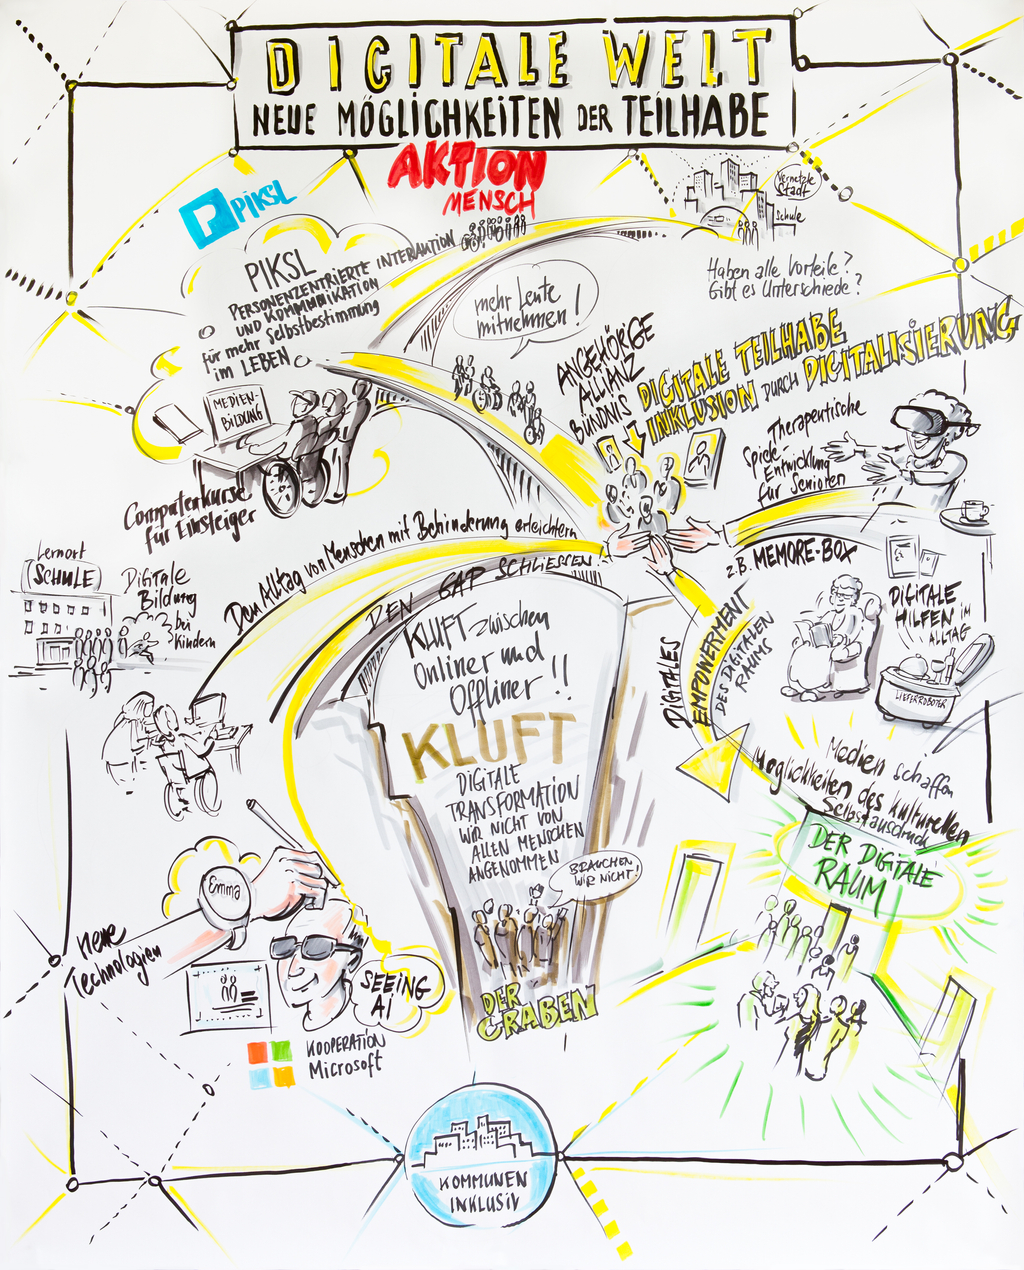 DIGITALE WELT
NEUE MÖGLICHKEITEN DER TEILHABE
AKTION
MENSCH
PIKSL
Vernetzte
Stadt
Schule
PIKSL
PERSONENZENTRIERTE INTERAKTION
UND KOMMMUNIKATION
für mehr Selbstbestimmung
im LEBEN
mehr Leute
mitnehmen!
Haben alle Vorteile?
Gibt es Unterschiede?
ANGEHÖRIGE
ALLIANZ
BÜNDNIS
DIGITALE TEILHABE
INKLUSION DURCH DIGITALISIERUNG
MEDIEN-
BILDUNG
Computerkurse
für Einsteiger
Therapeutische
Spiele-
Entwicklung
für Senioren
z.B. MEMORE-BOX
Lernort
SCHULE
DIGITALE
Bildung
bei
Kindern
Den Alltag von Menschen mit Behinderung erleichtern
DEN GAP SCHLIESSEN
KLUFT zwischen
Onliner und
Offliner!!
KLUFT
DIGITALE
TRANSFORMATION
WIR NICHT VON
ALLEN MENSCHEN
ANGENOMMEN
BRAUCHEN
WIR NICHT!
DER
GRABEN
DIGITALES
EMPOWERMENT
DES DIGITALEN
RAUMS
DIGITALE
HILFEN IM
ALLTAG
LIEFERROBOTER
Medien schaffen
Möglichkeiten des kulturellen
Selbstausdruck
DER DIGITALE
RAUM
Emma
Neue
Technologien
SEEING
AI
KOOPERATION
Microsoft
KOMMUNEN
INKLUSIV